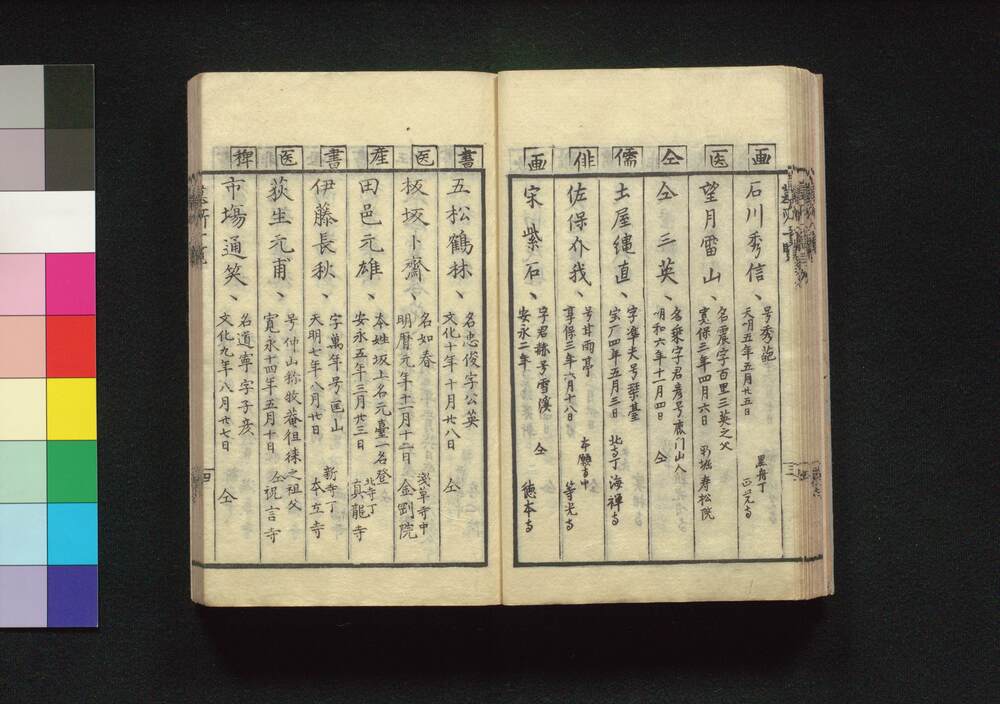 画
石川秀信、
号秀葩
天明五年五月廿五日
黒舟丁
正覚寺
医
望月雷山、
名震字百里三英之父
寛保三年四月六日
新堀寿松院
仝
仝三英、
名乗字君彦号鹿门山人
明和六年十一月四日
仝
儒
土屋縫直、
字準夫号栞臺
宝厂四年五月三日
北寺丁海禅寺
俳
佐保介我、
号甘雨亭
享保三年六月十八日
本願寺中
等光寺
画
宋紫石、
字君赫号雪溪
安永二年
仝
徳本寺
書
五松鶴林、
名忠俊字公英
文化十年十月廿八日
仝
医
板坂卜齋、
名如春
明暦元年十一月十二日
浅草寺中
金剛院
産
田邑元雄、
本姓坂上名元臺一名登
安永五年三月廿三日
北寺丁
真龍寺
書
伊藤長秋、
字萬年号匡山
天明七年八月廿日
新寺丁
本立寺
医
荻生元甫、
号仲山称牧菴徂徠之祖父
寛永十四年五月十日
仝
説言寺
稗
市塲通笑、
名道寧字子彦
文化九年八月廿七日
仝
墓所一覧
四